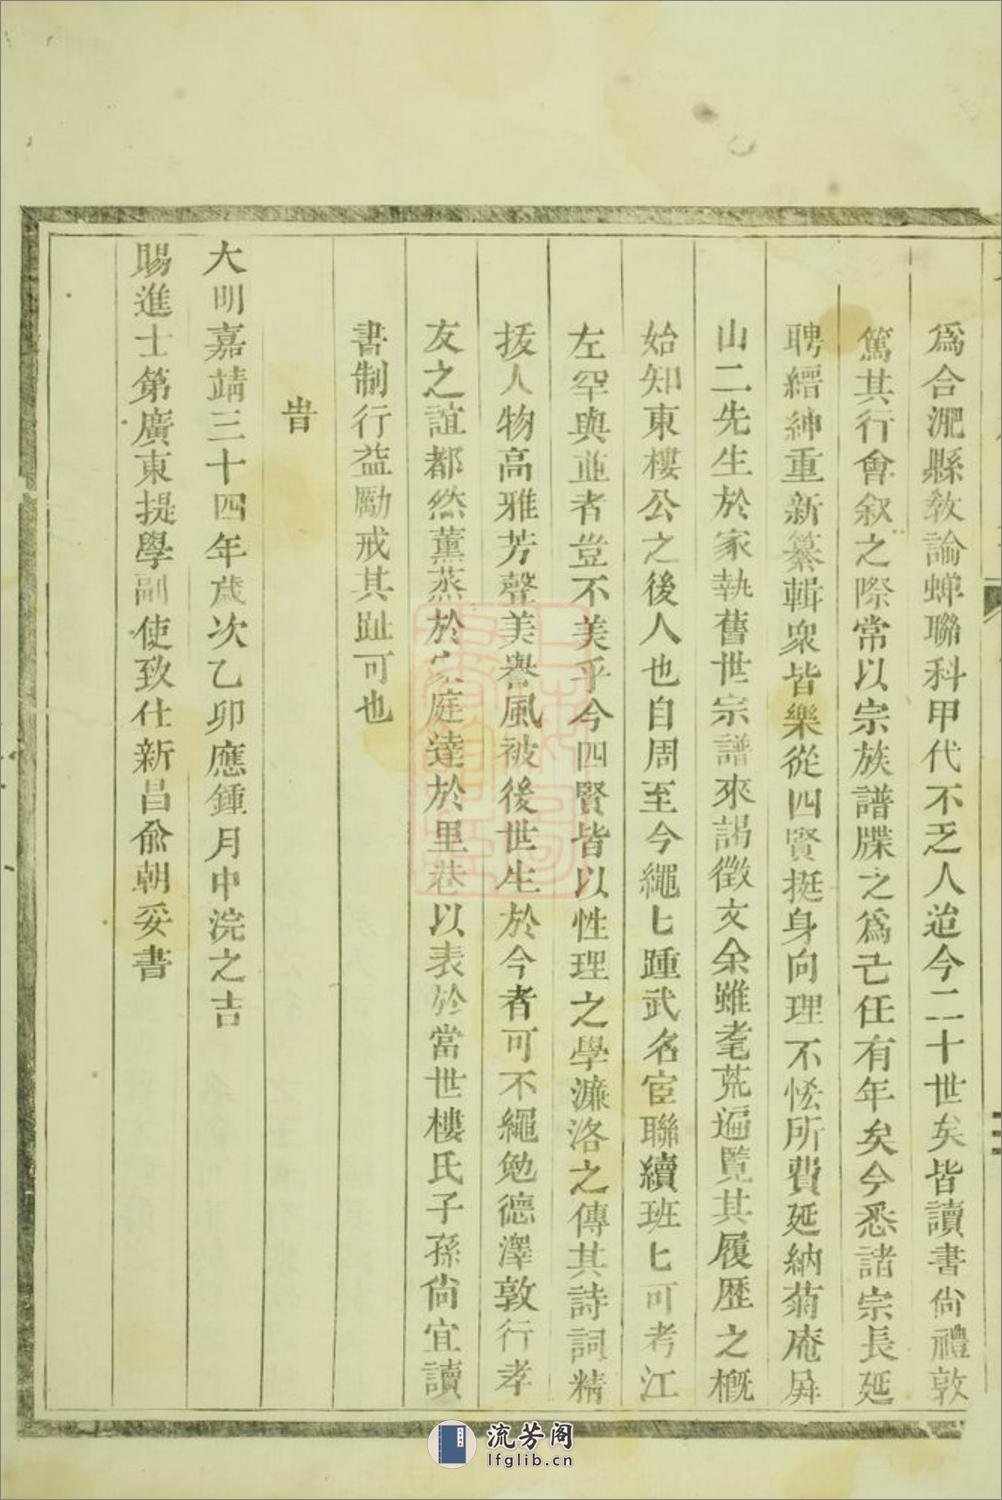 爲合淝縣教諭蟬聯科甲代不乏人迨今二十世矣皆讀書尙禮敦
篤其行會敘之際常以宗族譜牒之爲己任有年矣今悉諸宗長延
聘縉紳重新纂輯衆皆樂從四賢挺身向理不恡所費延納菊庵屏
山二先生於家執舊世宗譜來謁徵文余雖耄荒遍覽其履歷之槪
始知東樓公之後人也自周至今繩匕踵武名宦聯續班匕可考江
左罕與並者豈不美乎今四賢皆以性理之學濂洛之傳其詩詞精
拔人物高雅芳聲美譽風被後世生於今者可不繩勉德澤敦行孝
友之誼都然薰蒸於家庭達於里巷以表於當世樓氏子孫尙宜讀
書制行益勵戒其趾可也
旹
大明嘉靖三十四年歲次乙卯應鍾月中浣之吉
賜進士第廣東提學副使致仕新昌兪朝妥書
流芳阁
lfglib.cn